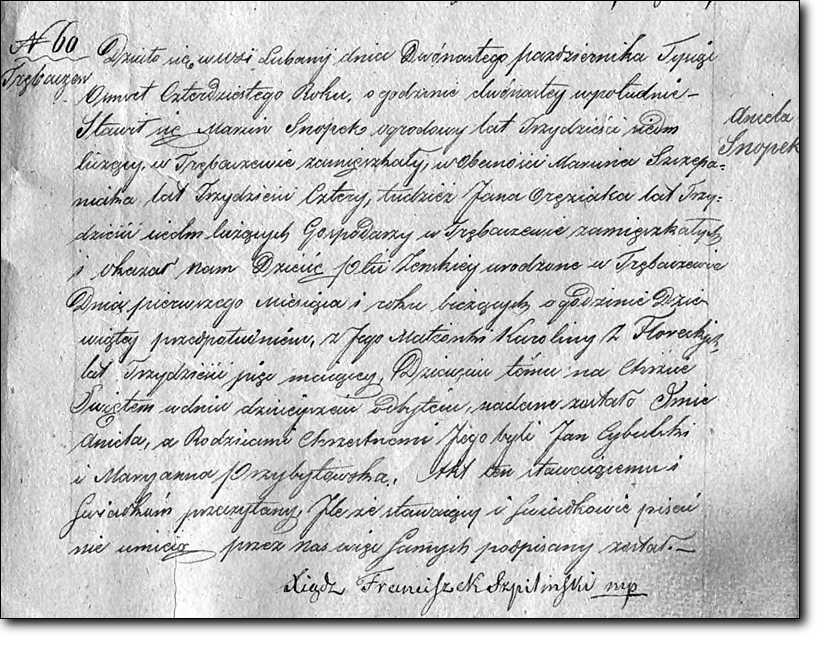 N 60
Trębaczew
Działo się w wsi Lubani dnia Dwónastego pazdziernika Tysiąc
Osmset Czterdziestego Roku, o godzinie dwónastey w południe –
Stawił się Marcin Snopek ogrodowy lat Trzydzieści siedm
liczący, w Trębaczewie zamięszkały, w obecności Marcina Szczepa-
niaka lat Trzydzieści Cztery, tudzież Jana Oręziaka lat Trzy-
dzieści siedm liczących Gospodarzy w Trębaczewie zamięszkałych
i okazał nam Dziecię płci Żenskiey urodzone w Trębaczewie
Dnia pierwszego Miesiąca i roku bieżących o godzinie Dzie-
wiątey przedpołudniem, z Jego Małżonki Karoliny z Floreckich
lat Trzydzieści pięć maiącey, Dziecięciu temu na Chrzcie
Swiętem w dniu dzisieyszem odbytem, nadane zostało Imie
Aniela, a Rodzicami Chrzestnemi Jego byli Jan Cybulski
i Maryanna Przybyłowska. Akt ten stawaiącemu i
Swiadkom przeczytany, Ile że stawaiący i Swiadkowie pisać
nie umieią przez nas więc samych podpisany został. –
Xiądz Franciszek Szpilinski mp
Aniela
Snopek